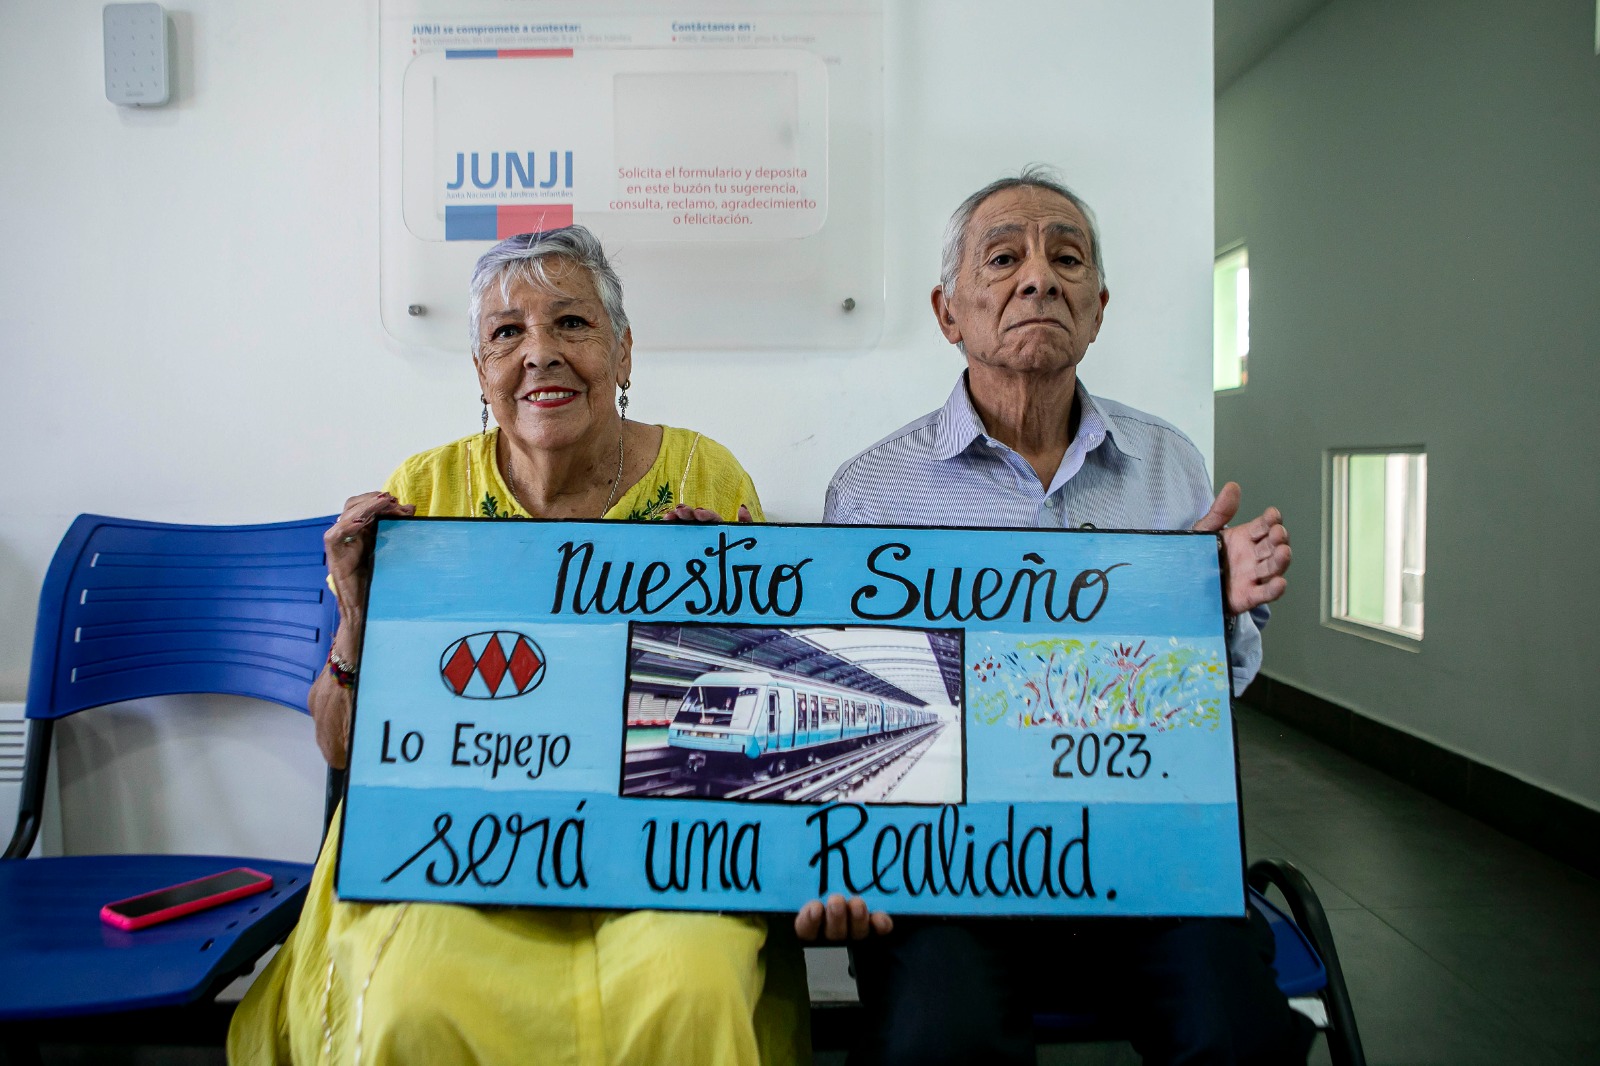 JUNJI se compromete a contestar:
Contáctanos en :
JUNJI
Junta Nacional de Jardines Infantiles
Solicita el formulario y deposita
en este buzón tu sugerencia,
consulta, reclamo, agradecimiento
o felicitación.
Nuestro Sueño
Lo Espejo
2023.
será una Realidad.